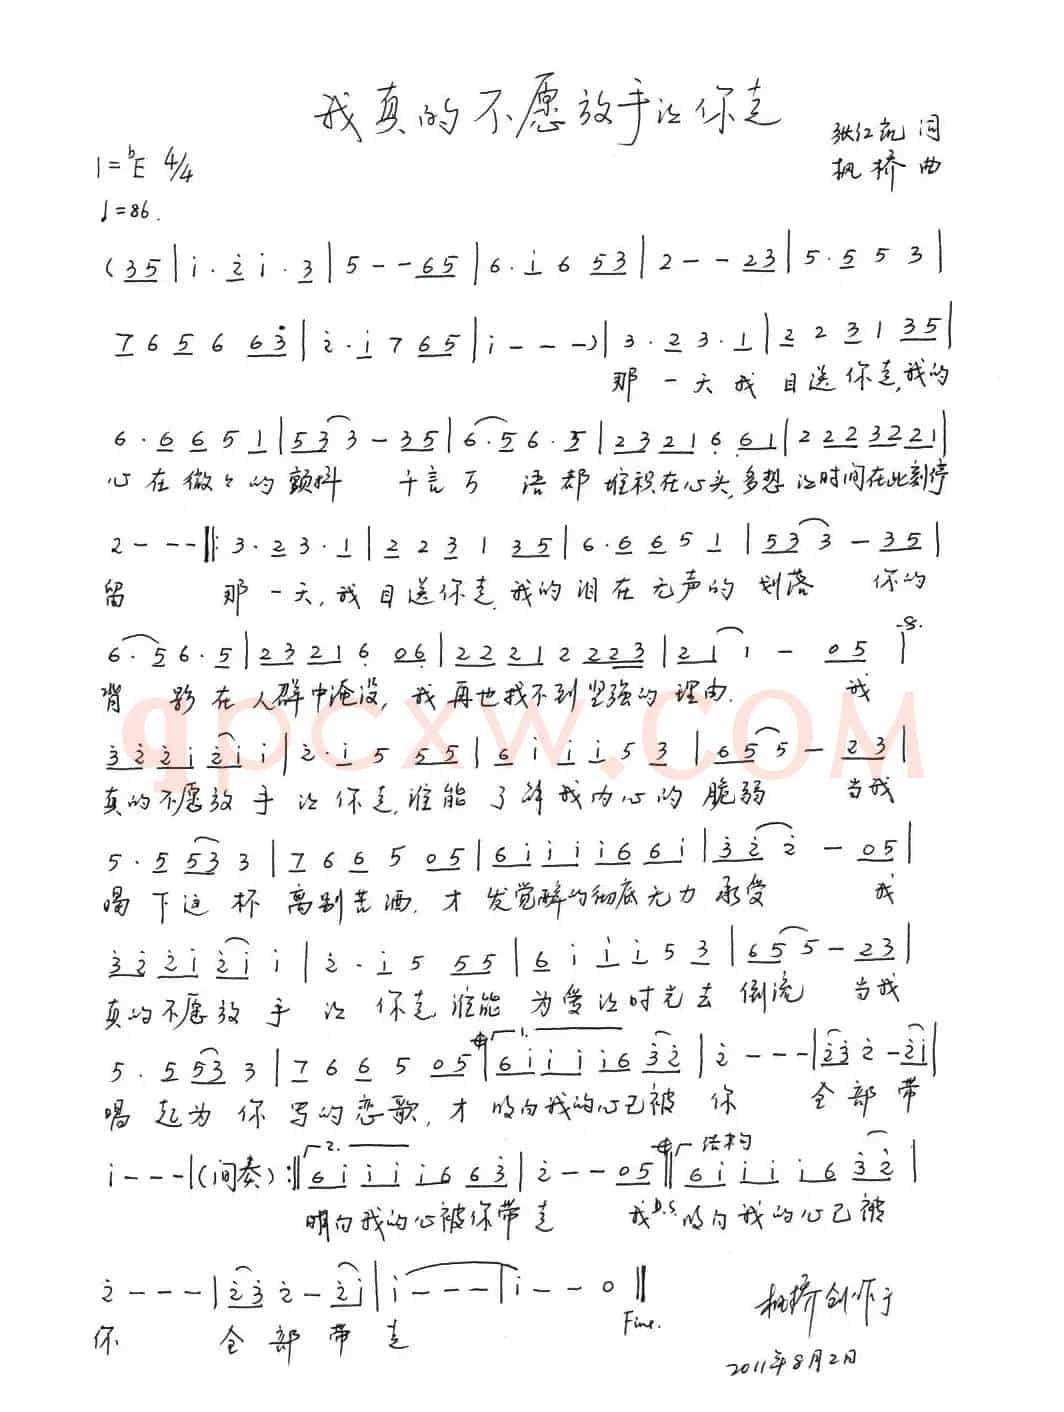 我真的不愿放手让你走
张红凯 词
枫桥 曲
1=♭E 4/4
♩=86.
(35|i·2̇i·3|5--65|6·i653|2--23|5·553|
7656 63̇|2̇·i765|i---)|3·23·1|2231 35|
那一天我目送你走,我的
6·6651|533-35|6·56·5|2321661|22223221|
心在微々的颤抖 千言万语都堆积在心头,多想让时间在此刻停
2---‖:3·23·1|223135|6·6651|533-35|
留 那一天,我目送你走,我的泪在无声的划落 你的
6·56·5|2321606|22221 2223|211-05|
背影在人群中淹没,我再也找不到坚强的理由. 我
3̇2̇2̇i2̇ii|2̇·i555|6iii53|655-23|
真的不愿放手让你走,谁能了解我内心的脆弱 当我
5·5533|766505|6iiii66i|3̇2̇2̇-05|
喝下这杯离别苦酒,才发觉醉的彻底无力承受 我
3̇2̇2̇i2̇ii|2̇·i555|6iii53|655-23|
真的不愿放手让你走谁能为爱让时光去倒流 当我
5·5533|766505‖1.6iiii63̇2̇|2̇---|2̇3̇2̇-2̇i|
喝起为你写的恋歌,才明白我的心已被你 全部带
i---|(间奏):‖2.6iiii663̇|2̇--05‖结构 6iiii63̇2̇|
明白我的心被你带走 我D.S.明白我的心已被
2̇---|2̇3̇2̇-2̇i|i---|i--0‖
Fine.
你 全部带走
枫桥创作于
2011年8月2日
qpcxw.COM